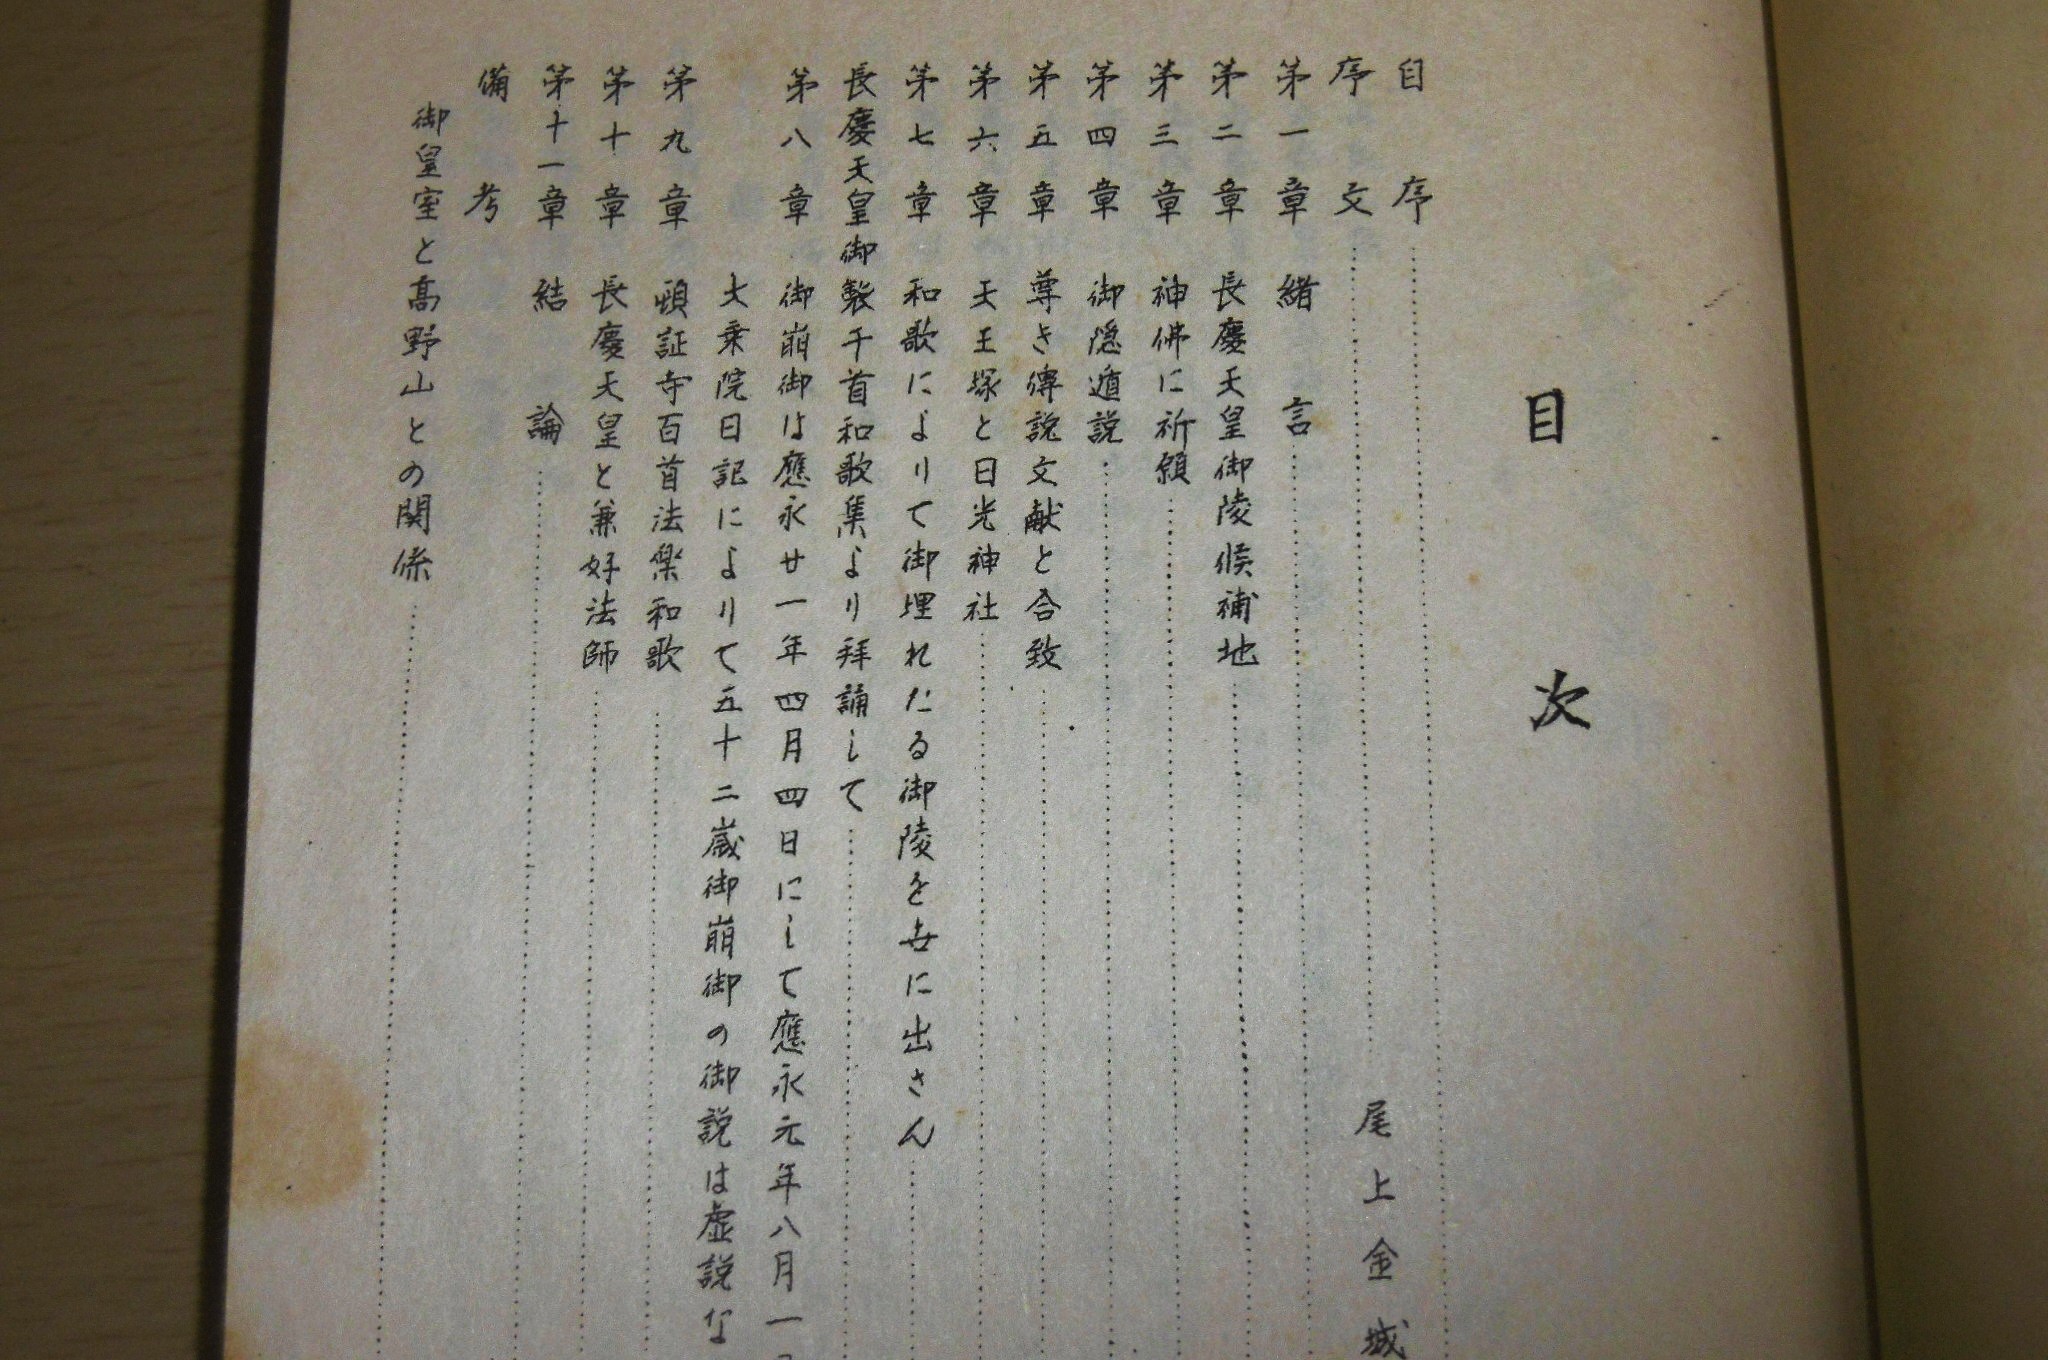 目次
自序
序文 尾上金城
第一章 緒言
第二章 長慶天皇御陵候補地
第三章 神佛に祈願
第四章 御隠遁説
第五章 尊き傳説文献と合致
第六章 天王塚と日光神社
第七章 和歌によりて御埋れたる御陵を世に出さん
長慶天皇御製千首和歌集より拜誦して
第八章 御崩御は應永廿一年四月四日にして應永元年八月一
大乗院日記によりて五十二歳御崩御の御説は虚説な
第九章 頓証寺百首法楽和歌
第十章 長慶天皇と兼好法師
第十一章 結論
備考
御皇室と高野山との関係